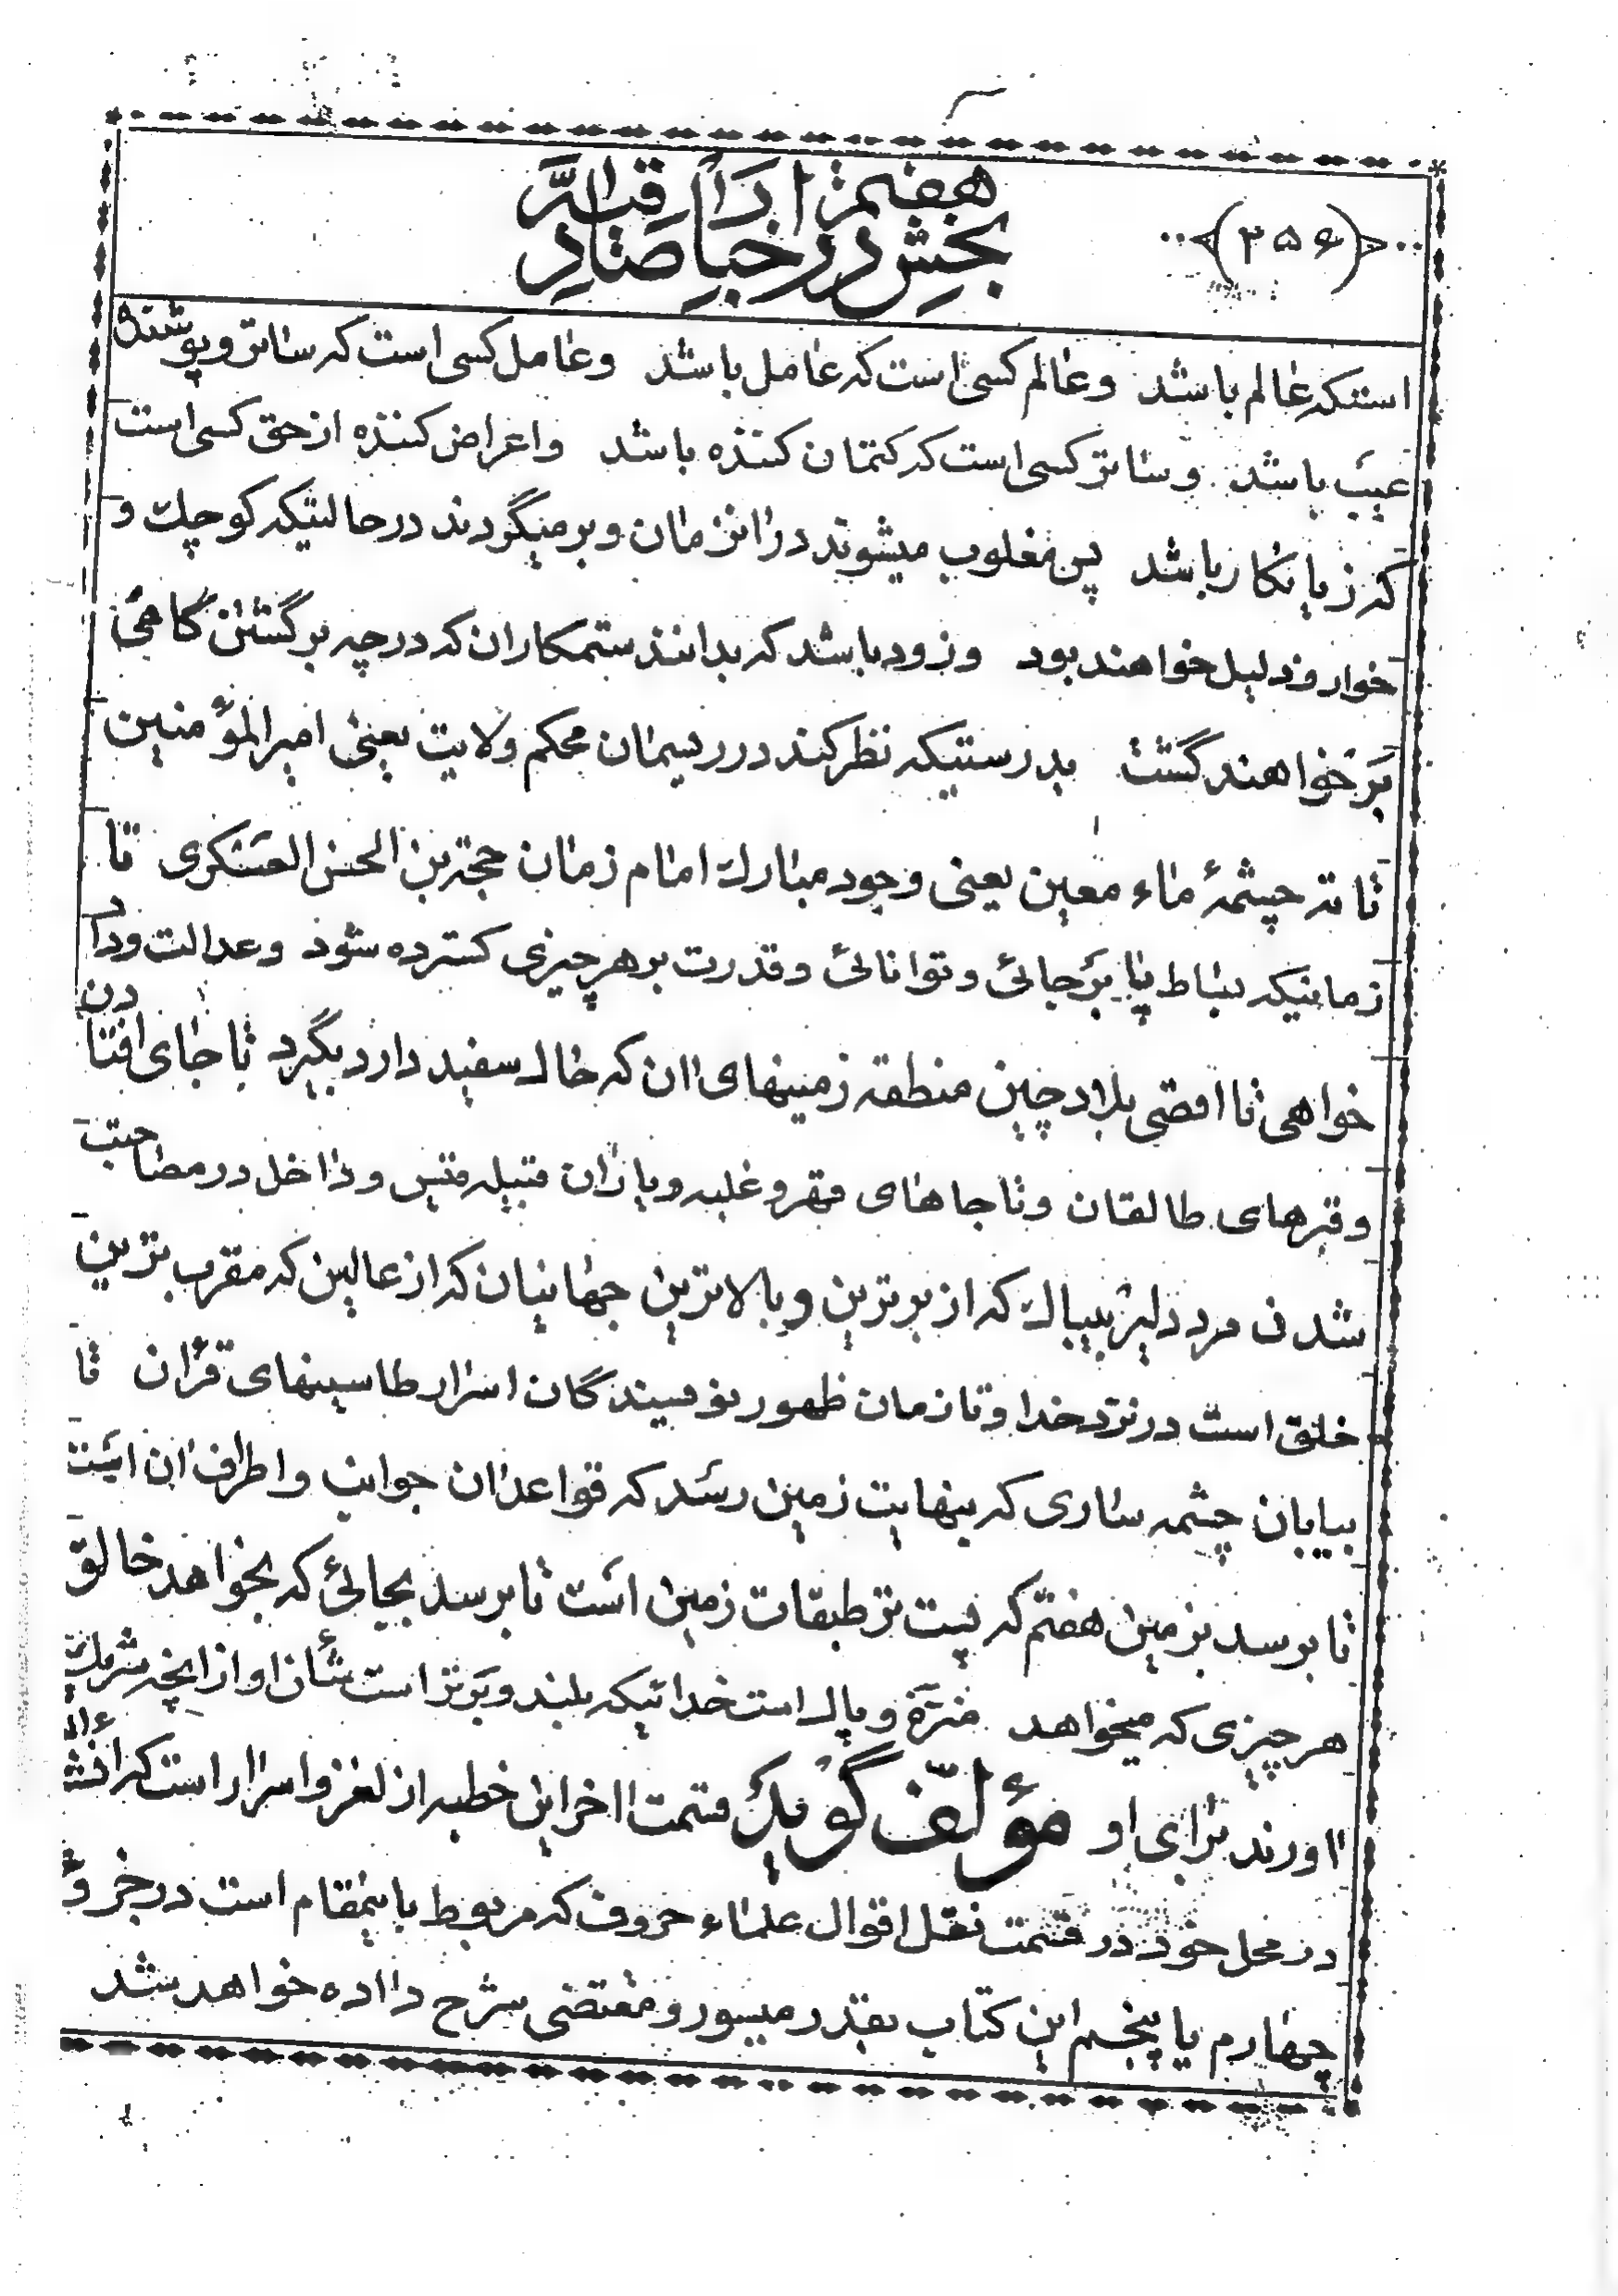 ﴿۳۵۶﴾
بخش هفتم در اخبار صادره از
استکه عالم باشد وعالم کسی است که عامل باشد وعامل کسی است که ساتر وپوشنده
عیب باشد وساتر کسی است که کتمان کننده باشد واعراض کننده از حق کسی است
که زیانکار باشد پس مغلوب میشوند در انزمان وبرمیگردند درحالتیکه کوچک و
خوار وذلیل خواهند بود وزود باشد که بدانند ستمکاران که درچه برگشتن گاهی
برخواهند گشت بدرستیکه نظر کند در ریسمان محکم ولایت یعنی امیرالمؤمنین
تا ته چشمهٔ ماء معین یعنی وجود مبارک امام زمان حجة بن الحسن العسکری تا
زمانیکه بساط پا برجائی وتوانائی وقدرت برهرچیزی کسترده شود وعدالت وداد
خواهی تا اقصی بلاد چین منطقه زمینهای اان که خاک سفید دارد بگیرد تا جای افتادن
وقبرهای طالقان وتا جاهای قهر وغلبه ویاران قبیله قیس وداخل درمصاحبت
شدن مرد دلیر بیباک که از برترین وبالاترین جهانیان که از عالین که مقرب ترین
خلق است درنزد خدا وتا زمان ظهور نویسندگان اسرار طاسینهای قرآن تا
بیابان چشمه ساری که بنهایت زمین رسد که قواعد ان جوانب واطراف ان است
تا برسد بزمین هفتم که پست تر طبقات زمین است تا برسد بجائی که بخواهد خالق
هرچیزی که میخواهد منزه وپاک است خدائیکه بلند وبرتر است شأن او از انچه شریک
ااورند برای او مؤلف گوید قسمت ااخر این خطبه از لغز واسرار است که انشاءالله
در محل خود در قسمت نقل اقوال علماء حروف که مربوط باینمقام است درجزو
چهارم یا پنجم این کتاب بقدر میسور ومقتضی شرح دااده خواهد شد